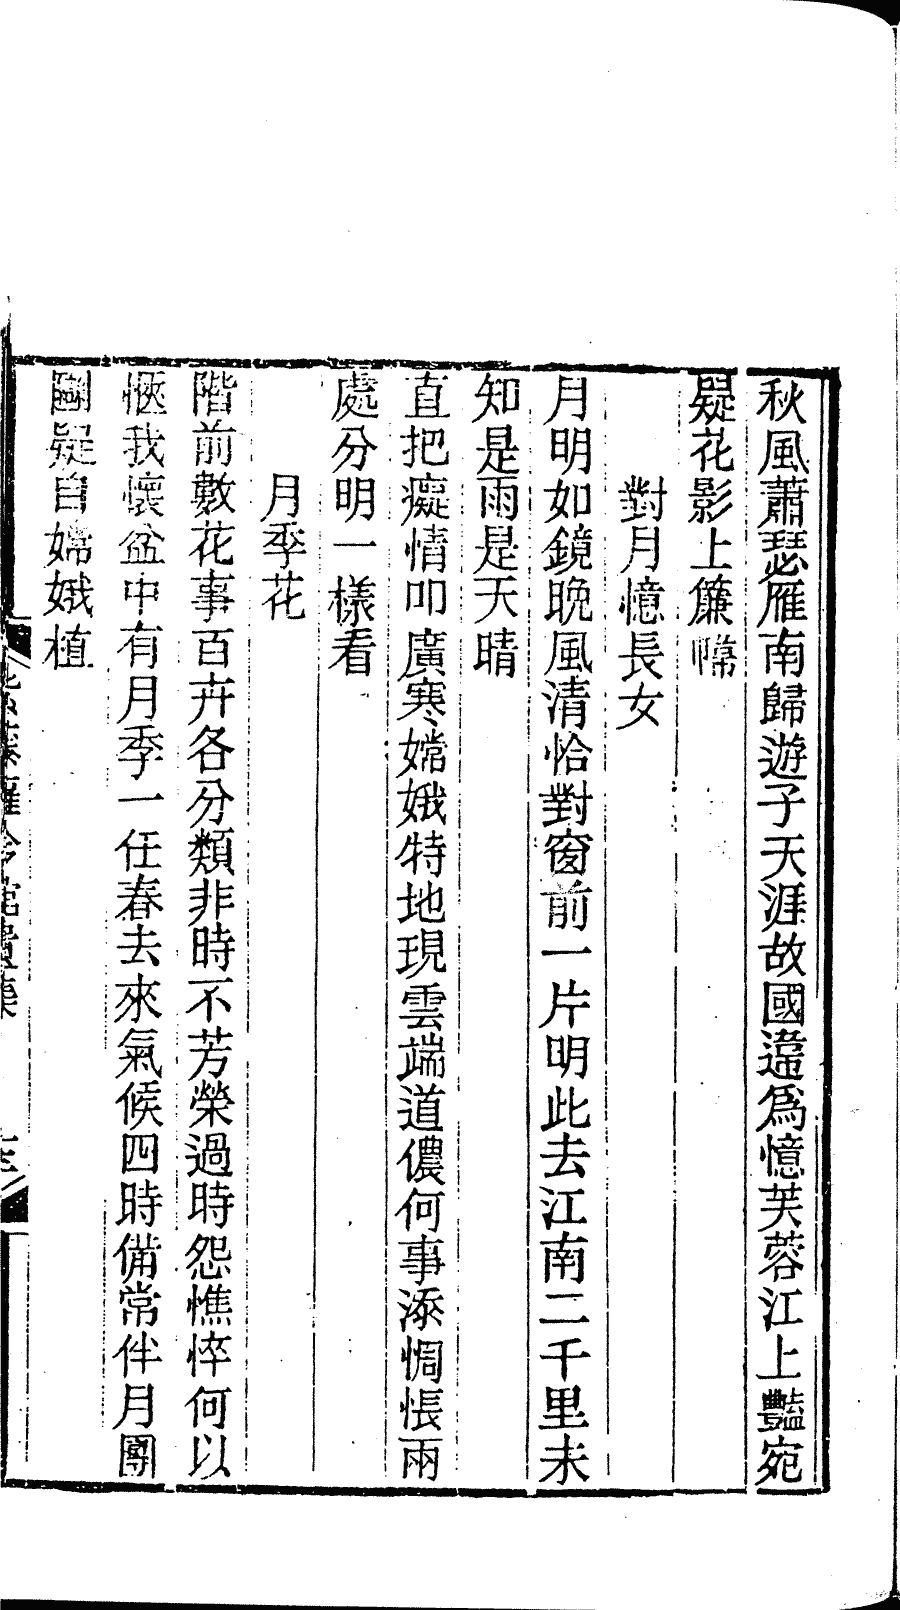 秋風蕭瑟雁南歸遊子天涯故國違爲憶芙蓉江上豔宛
疑花影上簾幃
對月憶長女
月明如鏡晚風清恰對窗前一片明此去江南二千里未
知是雨是天晴
直把癡情叩廣寒嫦娥特地現雲端道儂何事添惆悵兩
處分明一樣看
月季花
階前數花事百卉各分類非時不芳榮過時怨憔悴何以
愜我懷盆中有月季一任春去來氣候四時備常伴月團
圞疑自嫦娥植